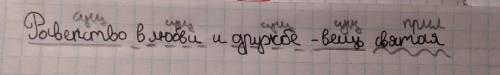 сущ сущ сущ сущ прил
Равенство в любви и дружбе - вещь святая